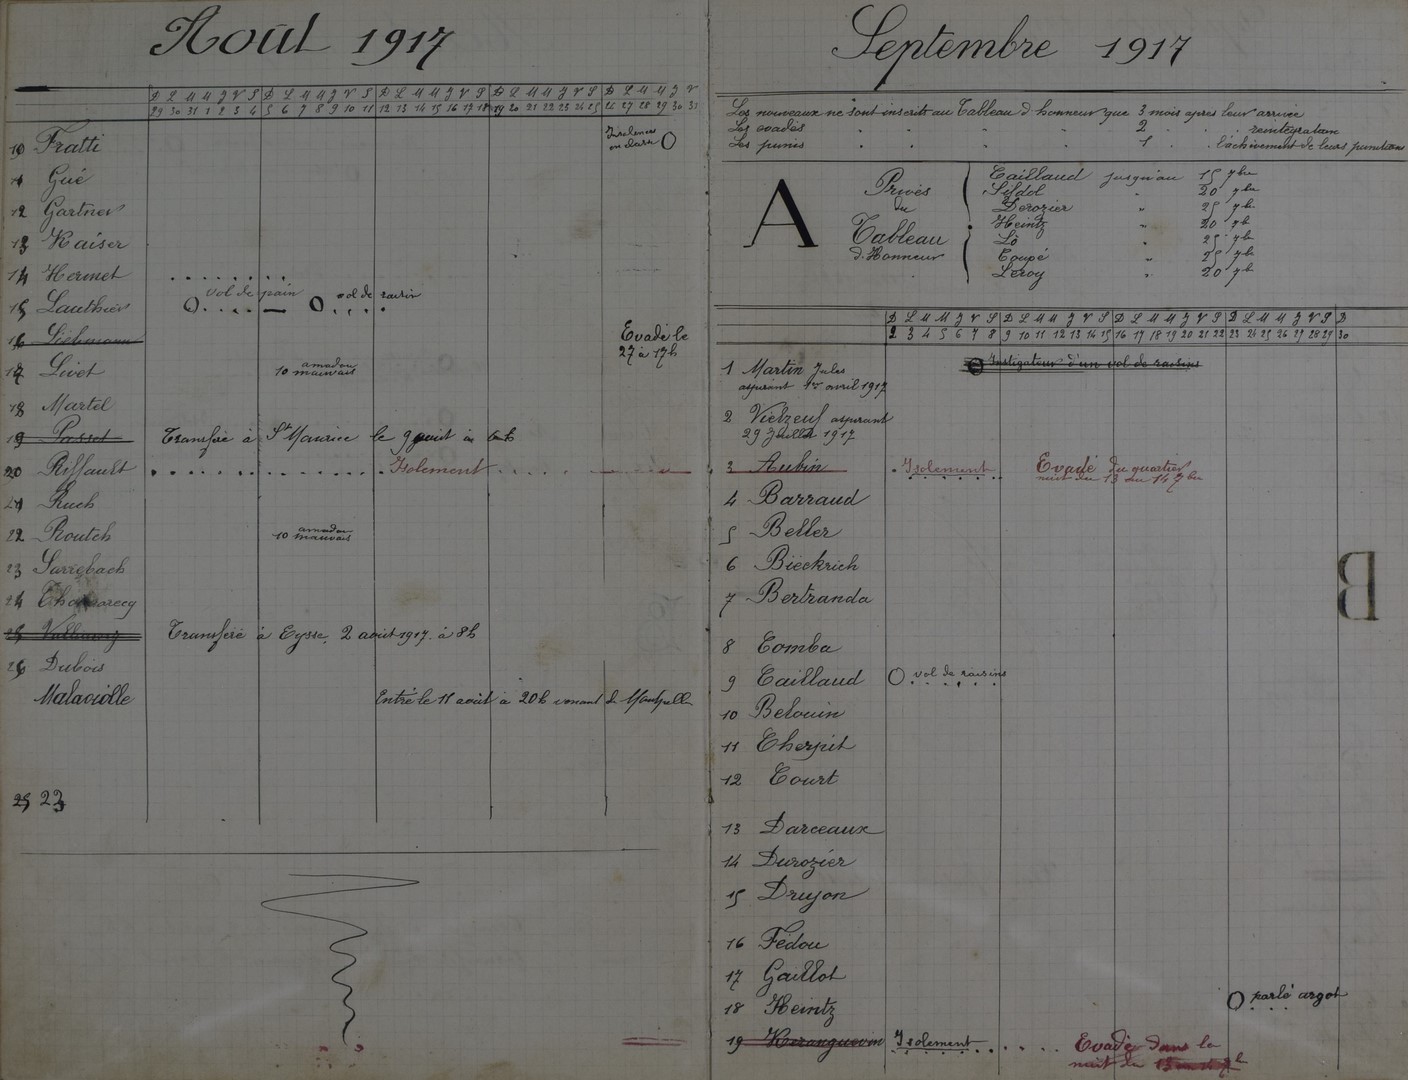 Août 1917
D L M M J V S D L M M J V S D L M M J V S D L M M J V S D L M M J V
29 30 31 1 2 3 4 5 6 7 8 9 10 11 12 13 14 15 16 17 18 19 20 21 22 23 24 25 26 27 28 29 30 31
10 Fratti
11 Gué
12 Gartner
13 Kaiser
14 Hermet
15 Lauthier vol de pain vol de raisin
16 Liebmann Evadé le 27 à 17h
17 Livet 10 amadou mauvais
18 Martel
19 Transféré à St Maurice le 9
20 Riffault Isolement
21 Ruch
22 Routch 10 amadou mauvais
23 Sarrebach
24
25 Transféré à Eysse. 2 août 1917. à 8h
26 Dubois
Malavialle Entré le 11 août à 20h venant de
25 23
Septembre 1917
Les nouveaux ne sont inscrits au Tableau d'honneur que 3 mois après leur arrivée
Les évadés " " " " 2 " " réintégration
Les punis " " " " 1 " " l'achèvement de leurs punitions
A
Privés du Tableau d'Honneur
Caillaud jusqu'au 15 7bre
20 7bre
Derozier " 25 7b
Heintz 20 7b
Lô " 25 7b
Coupé " 25 7b
Leroy " 20 7b
D L M M J V S D L M M J V S D L M M J V S D L M M J V S D
2 3 4 5 6 7 8 9 10 11 12 13 14 15 16 17 18 19 20 21 22 23 24 25 26 27 28 29 30
1 Martin Jules Instigateur d'un vol de raisins
aspirant 1er avril 1917
2 Vielzeuf aspirant
29 Juillet 1917
3 Aubin Isolement Evadé du quartier
nuit du 13 au 14 7bre
4 Barraud
5 Beller
6 Bieckrich
7 Bertranda
8 Comba
9 Caillaud vol de raisins
10 Belouin
11 Cherpit
12 Court
13 Darceaux
14 Durozier
15 Drujon
16 Fédou
17 Gaillot
18 Heintz parlé argot
19 Isolement Evadé dans la
nuit du
B